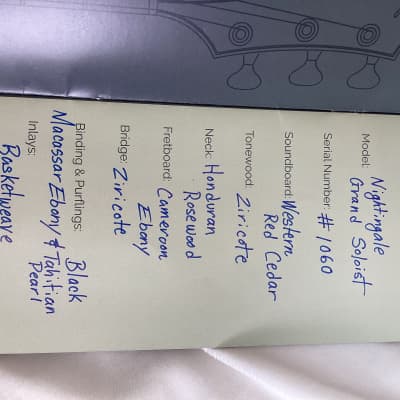 Model: Nightingale
Grand Soloist
Serial Number: #1060
Soundboard: Western
Red Cedar
Tonewood: Ziricote
Neck: Honduran
Rosewood
Fretboard: Cameroon
Ebony
Bridge: Ziricote
Binding & Purflings: Black
Macassar Ebony & Tahitian
Pearl
Inlays:
Basketweave